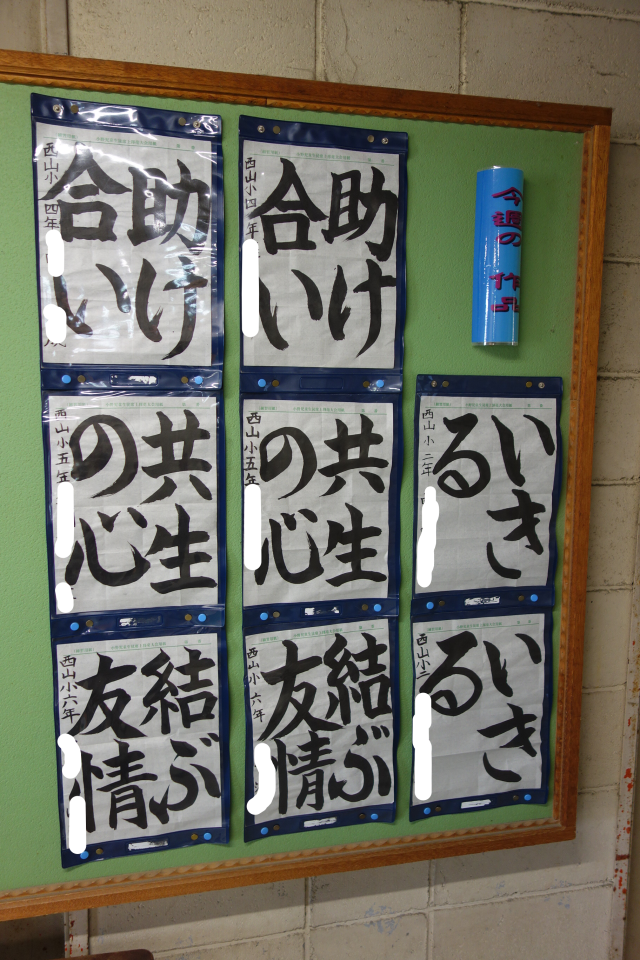 今週の作品
助け
合い
西山小四年
助け
合い
西山小四年
いき
る
西山小二年
共生
の心
西山小五年
共生
の心
西山小五年
いき
る
西山小二
結ぶ
友情
西山小六年
結ぶ
友情
西山小六年